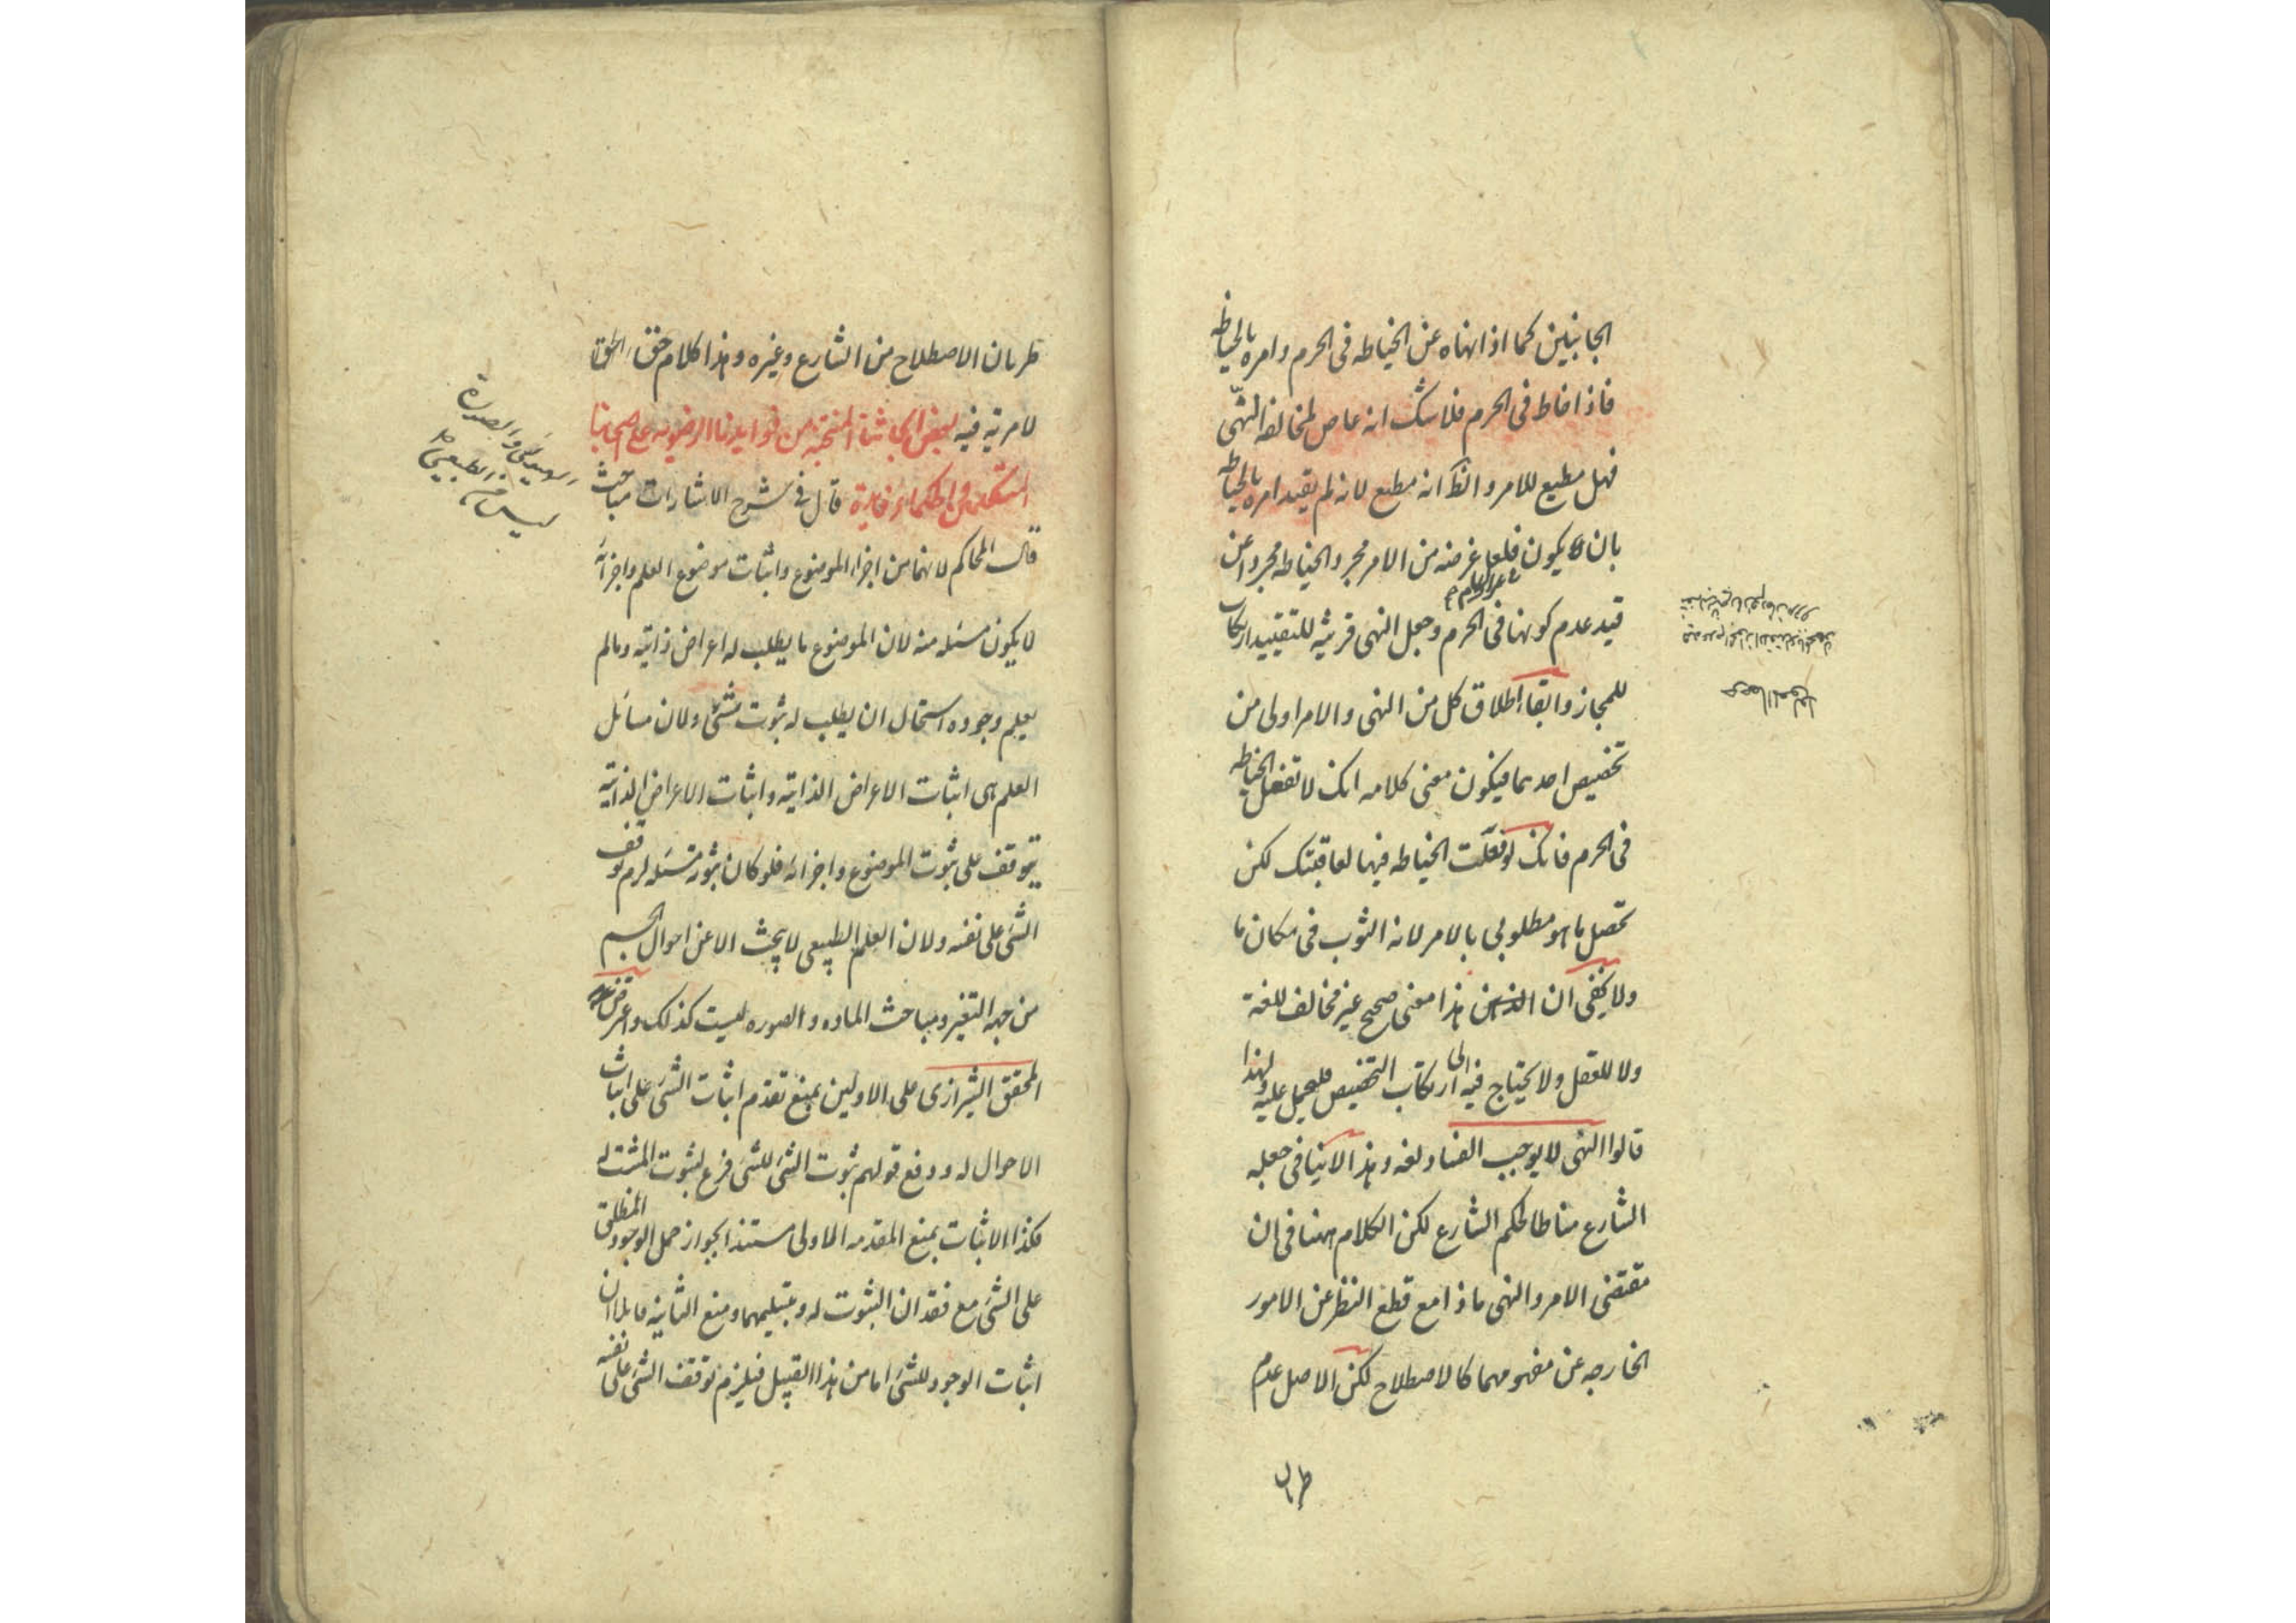 الجانبين كما اذا نهاه عن الخياطه فى الحرم وامره بالخياطه
فاذا خاط فى الحرم فلا شك انه عاص لمخالفه النهى
فهل مطيع للامر والظ انه مطيع لانه لم يقيد امره بالخياطه
بان يكون فلعل غرضه من الامر مجرد الخياطه مجردا عن
قيد عدم كونها فى الحرم وجعل النهى قرينه للتقييد ارتكاب
للمجاز وابقاء اطلاق كل من النهى والامر اولى من
تخصيص احدهما فيكون معنى كلامه انك لا تفعل الخياطه
فى الحرم فانك لو فعلت الخياطه فيها لعاقبتك لكن
تحصل ما هو مطلوبى بالامر لانه الثوب فى مكان ما
ولا يخفى ان هذا معنى صحيح غير مخالف للغة
ولا للعقل ولا يحتاج فيه الى ارتكاب التخصيص فليحمل عليه ولهذا
قالوا النهى لا يوجب الفساد لغه وهذا لا ينافى جعله
الشارع مناطا لحكم الشارع لكن الكلام ههنا فى ان
مقتضى الامر والنهى ماذا مع قطع النظر عن الامور
الخارجه عن مفهومهما كالاصطلاح لكن الاصل عدم
طريان
طريان الاصطلاح من الشارع وغيره وهذا كلام حق
لا مرية فيه بعض من فوايدنا الرضويه على اصحابنا
المتكلمين والحكماء فايدة قال فى شرح الاشارات مباحث
الهيولى والصورة
ليس من الطبيعى
قال المحاكم لانهما من اجزاء الموضوع واثبات موضوع العلم واجزائه
لا يكون مسئله منه لان الموضوع ما يطلب له اعراض ذاتيه ومالم
يعلم وجوده استحال ان يطلب له ثبوت شئ ولان مسائل
العلم هى اثبات الاعراض الذاتيه واثبات الاعراض الذاتيه
يتوقف على ثبوت الموضوع واجزائه فلو كان ثبوته مسئله لزم توقف
الشئ على نفسه ولان العلم الطبيعى لا يبحث الا عن احوال الجسم
من جهه التغير ومباحث الماده والصوره ليست كذلك واعترض
المحقق الشيرازى على الاولين بمنع تقدم اثبات الشئ على اثبات
الاحوال له ودفع قولهم ثبوت الشئ للشئ فرع لثبوت المثبت له
فكذا الاثبات بمنع المقدمه الاولى مستندا بجواز حمل الوجود المطلق
على الشئ مع فقدان الثبوت له وبتسليمهما ومنع الثانيه قايلا ان
اثبات الوجود للشئ اما من هذا القبيل فيلزم توقف الشئ على نفسه